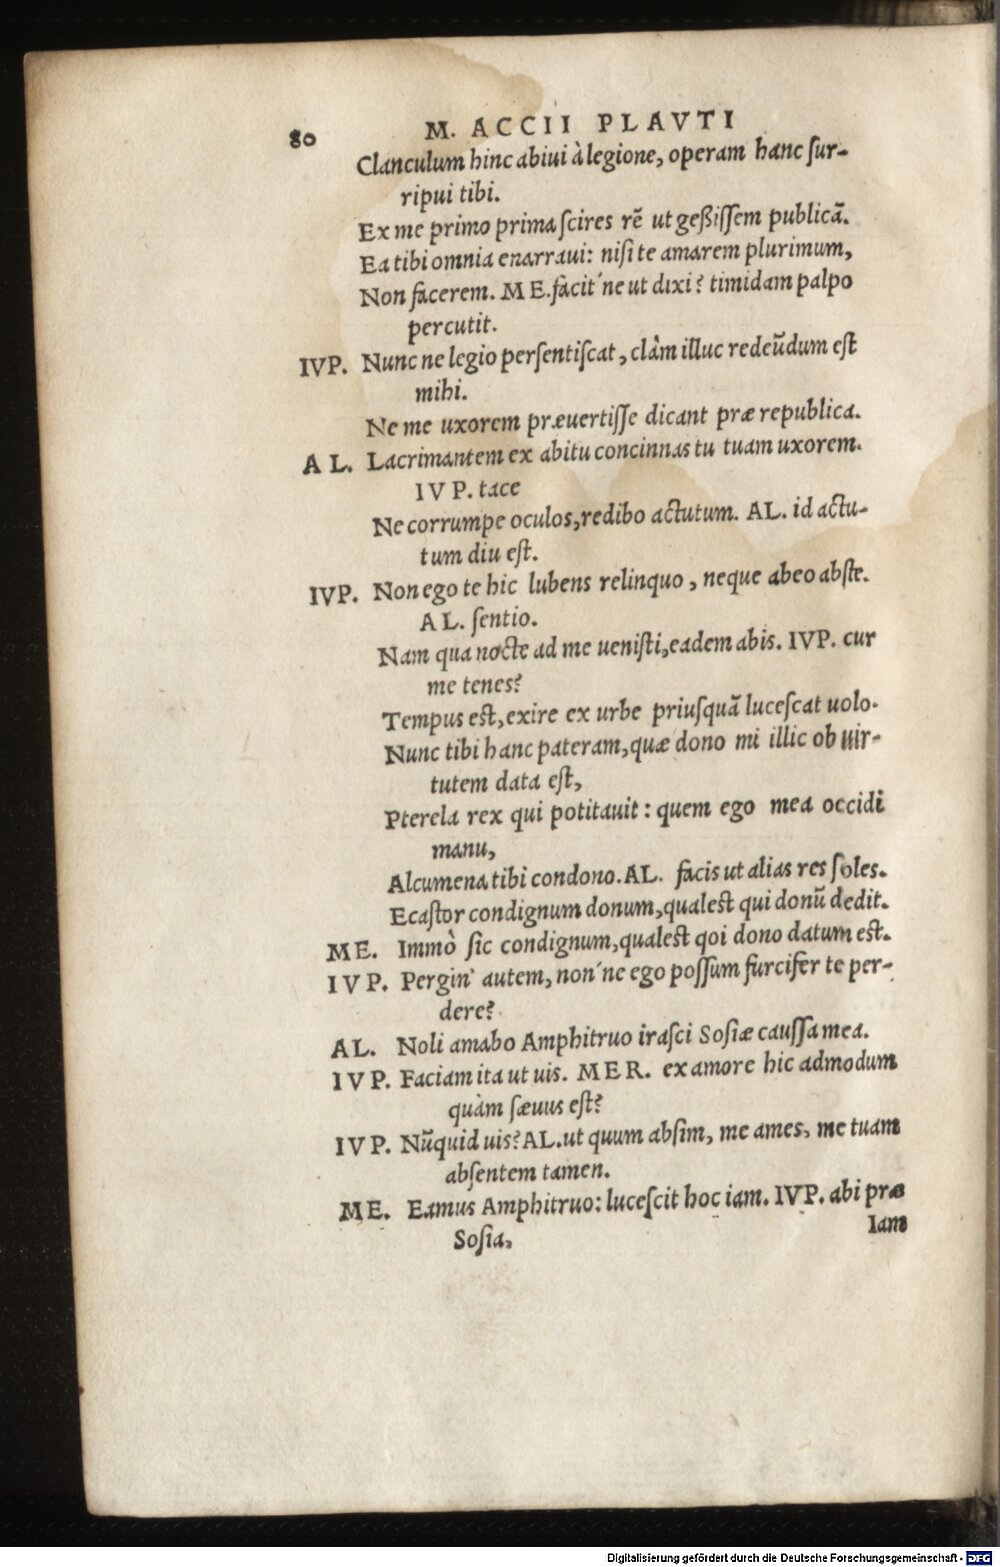 80 M. ACCII PLAVTI
Clanculum hinc abiui à legione, operam hanc ſur-
ripui tibi.
Ex me primo prima ſcires rē ut geßiſſem publicā.
Ea tibi omnia enarraui: niſi te amarem plurimum,
Non facerem. ME. facit´ne ut dixi? timidam palpo
percutit.
IVP. Nunc ne legio perſentiſcat, clàm illuc redeūdum eſt
mihi.
Ne me uxorem præuertiſſe dicant præ republica.
AL. Lacrimantem ex abitu concinnas tu tuam uxorem.
IVP. tace
Ne corrumpe oculos, redibo actutum. AL. id actu-
tum diu eſt.
IVP. Non ego te hic lubens relinquo, neque abeo abſte.
AL. ſentio.
Nam qua nocte ad me ueniſti, eadem abis. IVP. cur
me tenes?
Tempus eſt, exire ex urbe priuſquā luceſcat uolo.
Nunc tibi hanc pateram, quæ dono mi illic ob uir-
tutem data eſt,
Pterela rex qui potitauit: quem ego mea occidi
manu,
Alcumena tibi condono. AL. facis ut alias res ſoles.
Ecaſtor condignum donum, qualeſt qui donū dedit.
ME. Immò ſic condignum, qualeſt qoi dono datum eſt.
IVP. Pergin’ autem, non´ne ego poſſum furcifer te per-
dere?
AL. Noli amabo Amphitruo iraſci Soſiæ cauſſa mea.
IVP. Faciam ita ut uis. MER. ex amore hic admodum
quàm ſæuus eſt?
IVP. Nūquid uis? AL. ut quum abſim, me ames, me tuam
abſentem tamen.
ME. Eamus Amphitruo: luceſcit hoc iam. IVP. abi præ
Soſia,
Iam
Digitalisierung gefördert durch die Deutsche Forschungsgemeinschaft - DFG